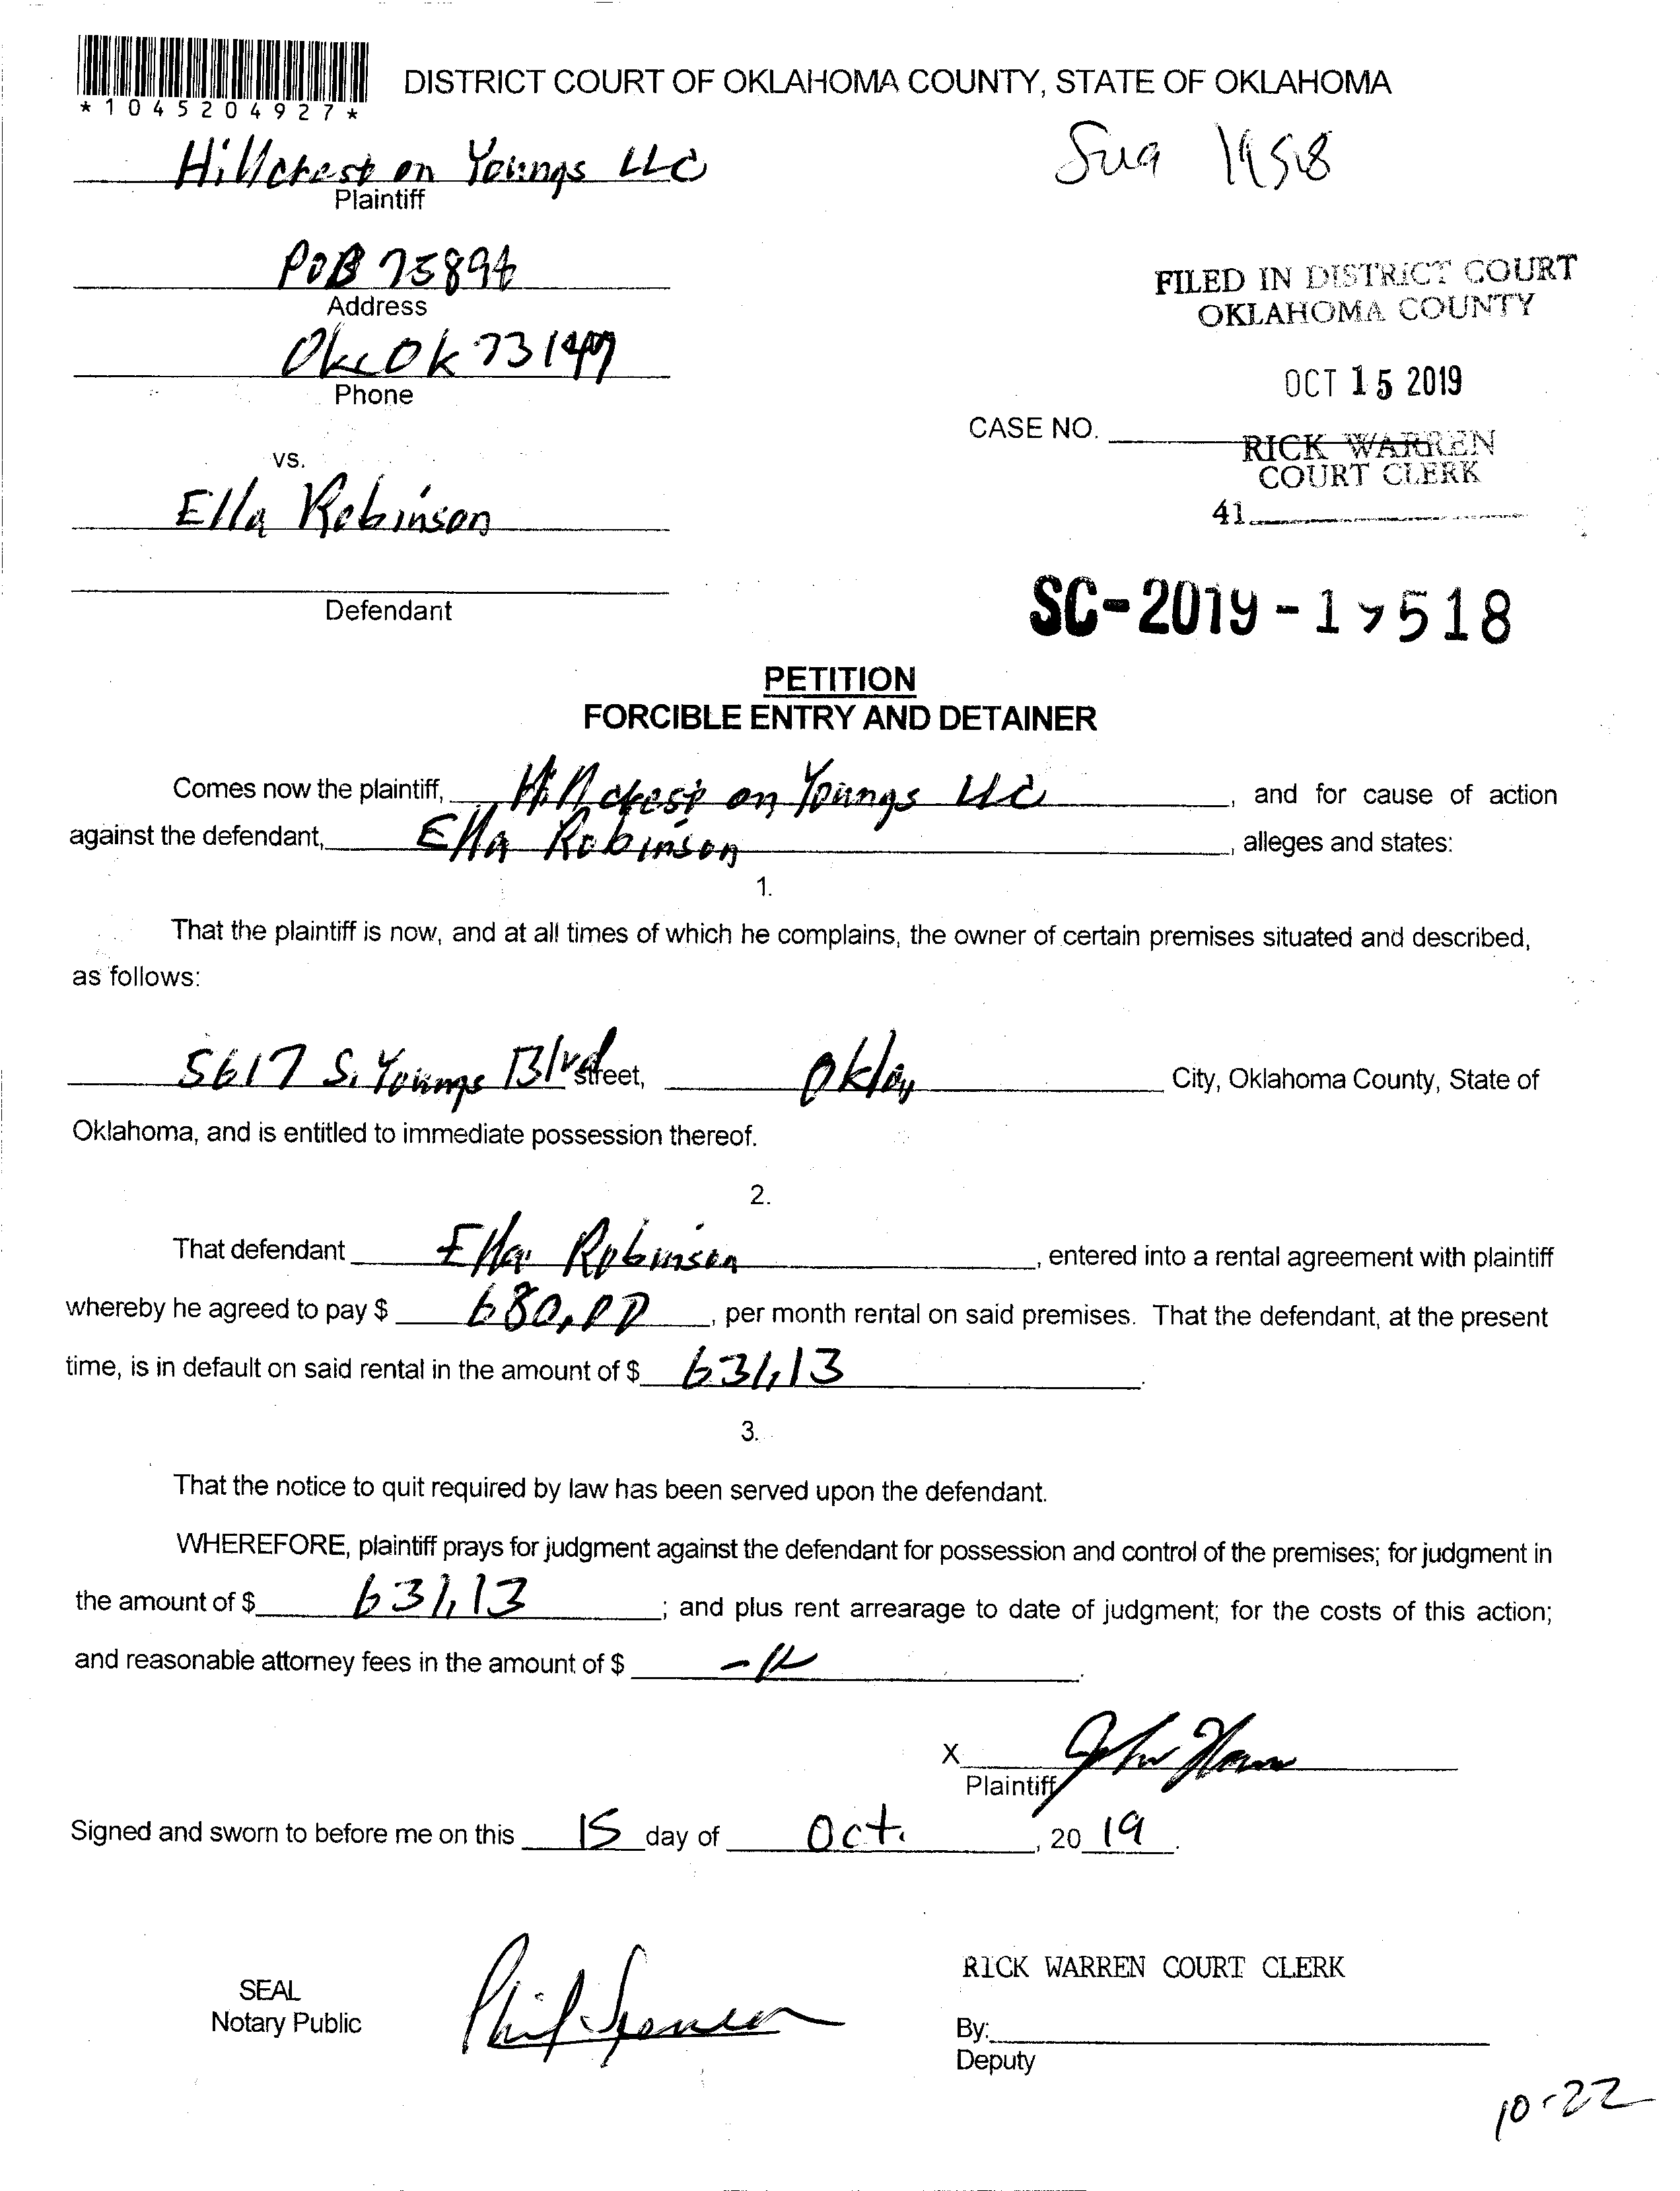 DISTRICT COURT OF OKLAHOMA COUNTY, STATE OF OKLAHOMA
*1045204927*
Hillcrest on Youngs LLC
Plaintiff
POB
Address
Okc Ok
Phone
FILED IN DISTRICT COURT
OKLAHOMA COUNTY
OCT 15 2019
CASE NO.
RICK WARREN
COURT CLERK
41
vs.
Ella Robinson
Defendant
SC-2019-17518
PETITION
FORCIBLE ENTRY AND DETAINER
Comes now the plaintiff, Hillcrest on Youngs LLC, and for cause of action
against the defendant, Ella Robinson, alleges and states:
1.
That the plaintiff is now, and at all times of which he complains, the owner of certain premises situated and described,
as follows:
5617 S. Youngs Blvd street, Okla, City, Oklahoma County, State of
Oklahoma, and is entitled to immediate possession thereof.
2.
That defendant Ella Robinson, entered into a rental agreement with plaintiff
whereby he agreed to pay $ 680.00, per month rental on said premises. That the defendant, at the present
time, is in default on said rental in the amount of $ 631.13.
3.
That the notice to quit required by law has been served upon the defendant.
WHEREFORE, plaintiff prays for judgment against the defendant for possession and control of the premises; for judgment in
the amount of $ 631.13; and plus rent arrearage to date of judgment; for the costs of this action;
and reasonable attorney fees in the amount of $
X
Plaintiff
Signed and sworn to before me on this 15 day of Oct., 20 19.
SEAL
Notary Public
RICK WARREN COURT CLERK
By:
Deputy
10-22